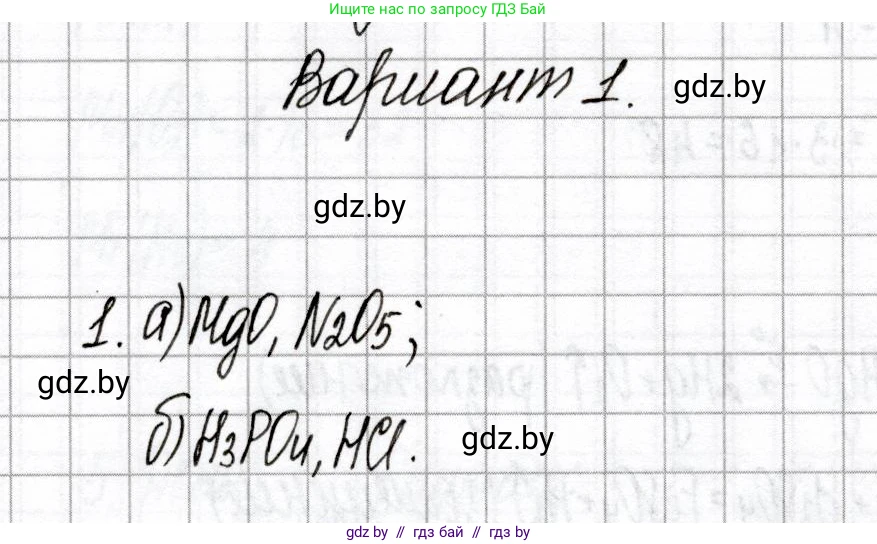 Ищите нас по запросу ГДЗ Бай
Вариант 1.
gdz.by
gdz.by
1. а) MgO, N2O5;
gdz.by
б) H3PO4, HCl.
gdz.by
gdz by // гдз бай // гдз by